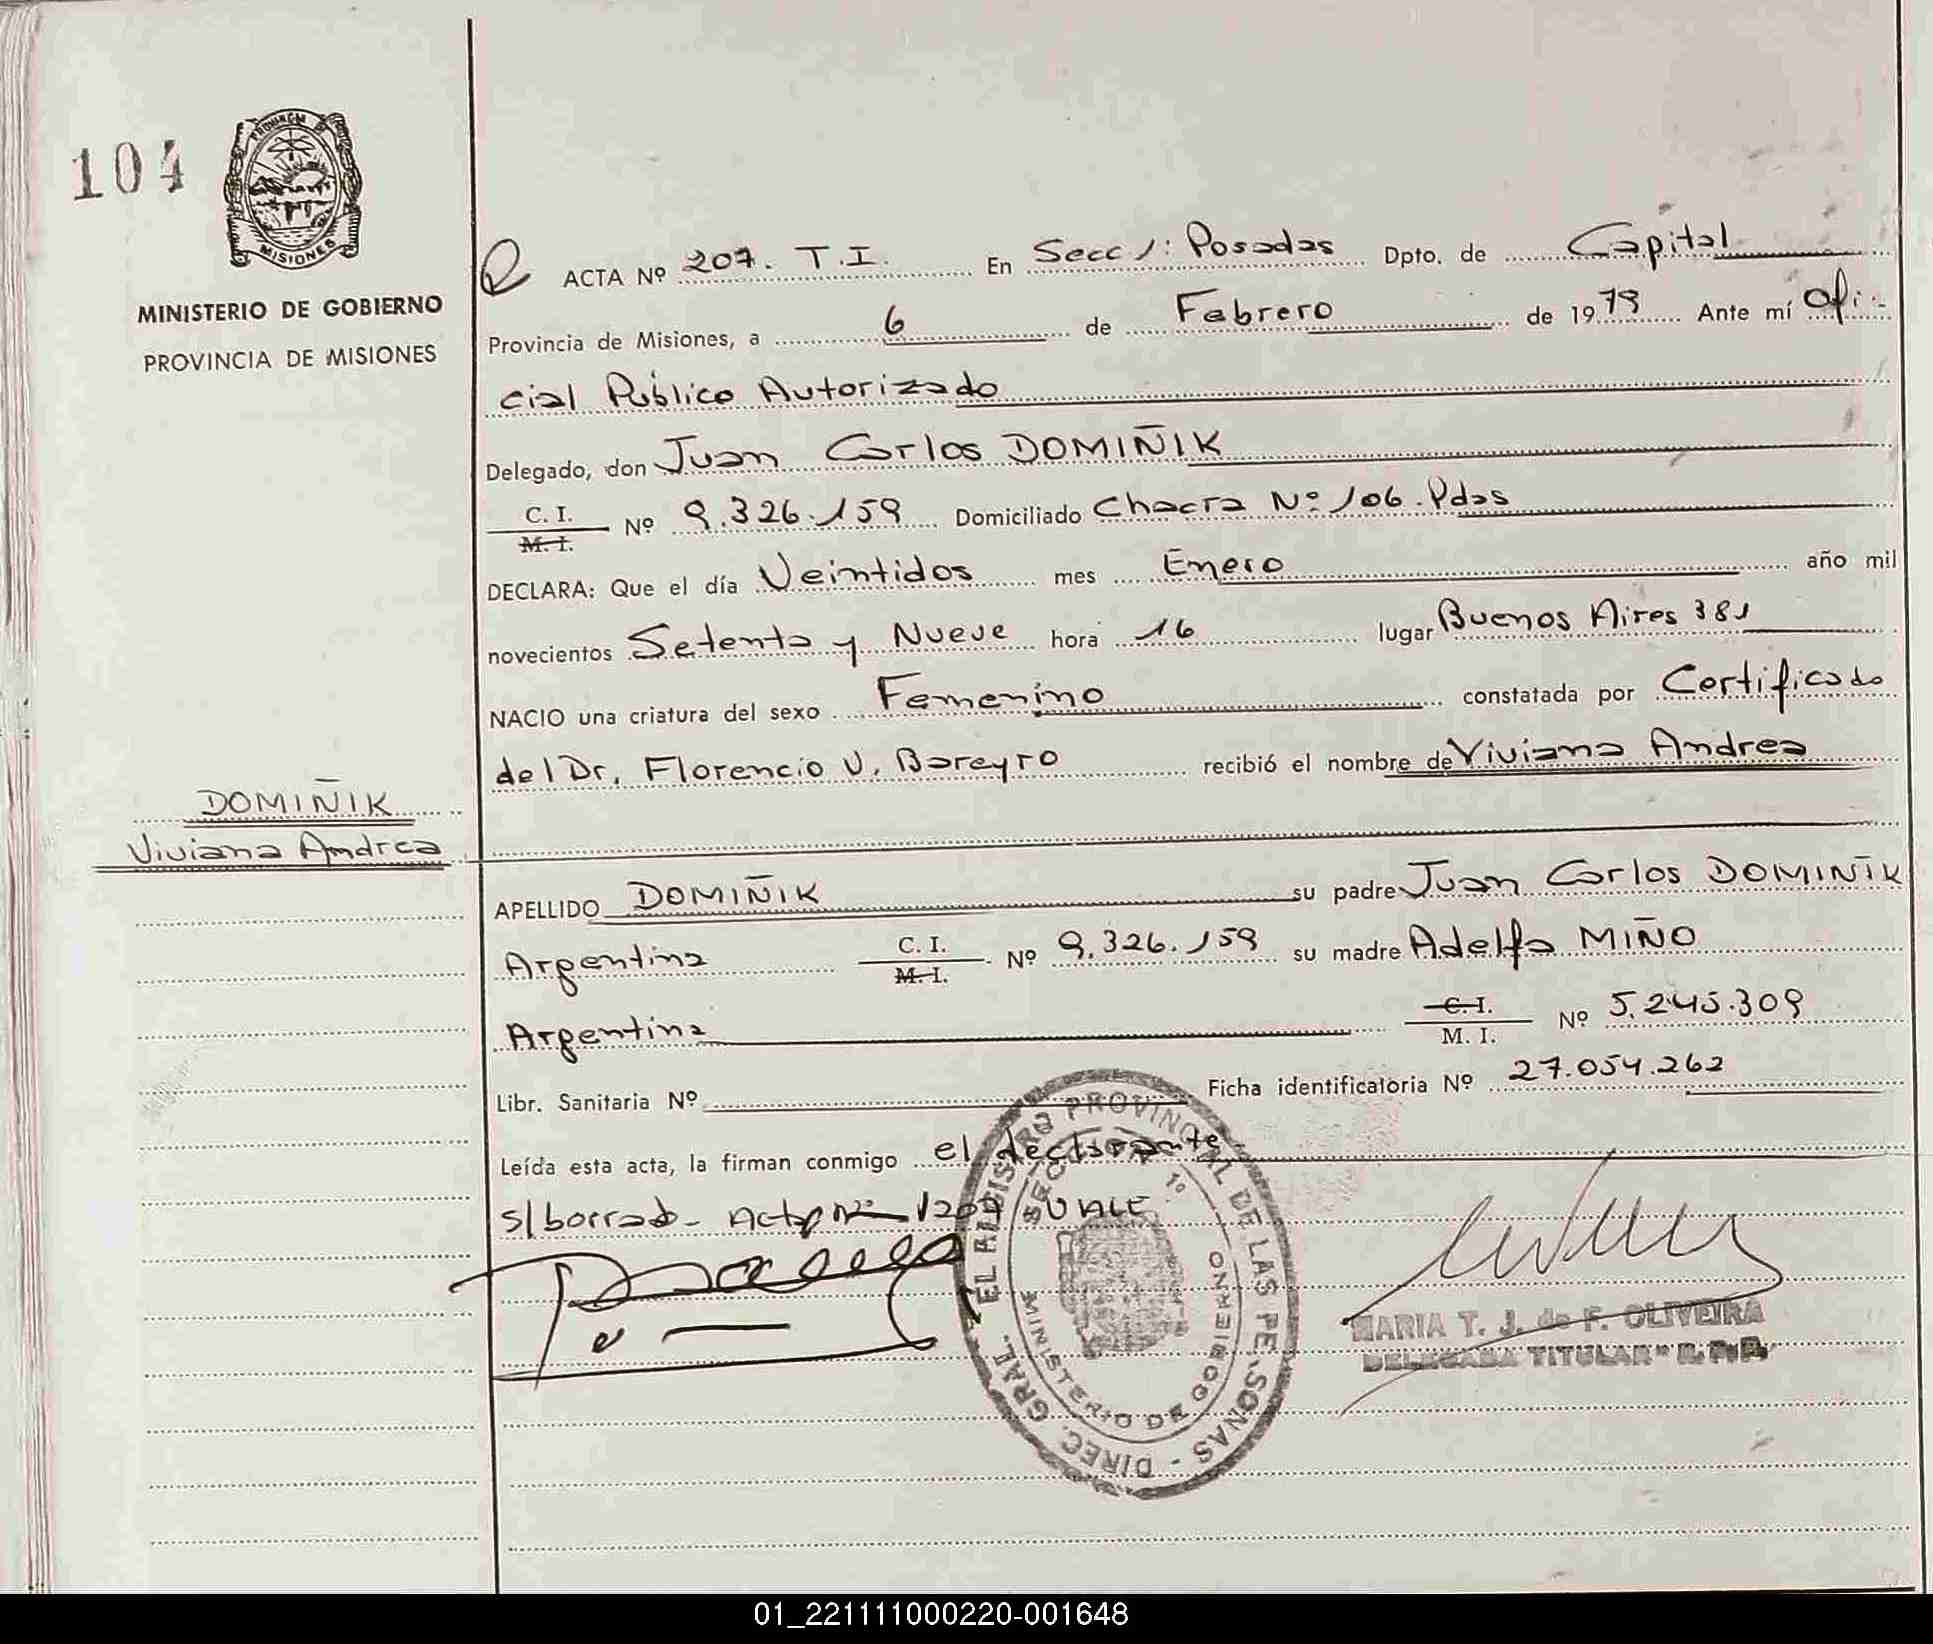 104
PROVINCIA DE
MISIONES
MINISTERIO DE GOBIERNO
PROVINCIA DE MISIONES
ACTA Nº 207. T.I. En Secc 1: Posadas Dpto. de Capital
Provincia de Misiones, a 6 de Febrero de 1979 Ante mí Ofi-
cial Público Autorizado
Delegado, don Juan Carlos DOMIÑIK
C. I.
M. I.
Nº 9.326.159 Domiciliado Chacra Nº 106. Pdas
DECLARA: Que el día Veintidos mes Enero año mil
novecientos Setenta y Nueve hora 16 lugar Buenos Aires 381
NACIO una criatura del sexo Femenino constatada por Certificado
del Dr. Florencio V. Bareyro recibió el nombre de Viviana Andrea
DOMIÑIK
Viviana Andrea
APELLIDO DOMIÑIK su padre Juan Carlos DOMIÑIK
Argentina C. I.
M. I.
Nº 9.326.159 su madre Adelfa MIÑO
Argentina C. I.
M. I.
Nº 5.245.309
Libr. Sanitaria Nº Ficha identificatoria Nº 27.054.262
Leída esta acta, la firman conmigo el declarante
s/borrado - Acta Nº 207 VALE
DIREC. GRAL. DEL REGISTRO PROVINCIAL DE LAS PERSONAS
SECC 1º
MINISTERIO DE GOBIERNO
MARIA T. J. de F. OLIVEIRA
DELEGADA TITULAR R. P. P.
01_221111000220-001648